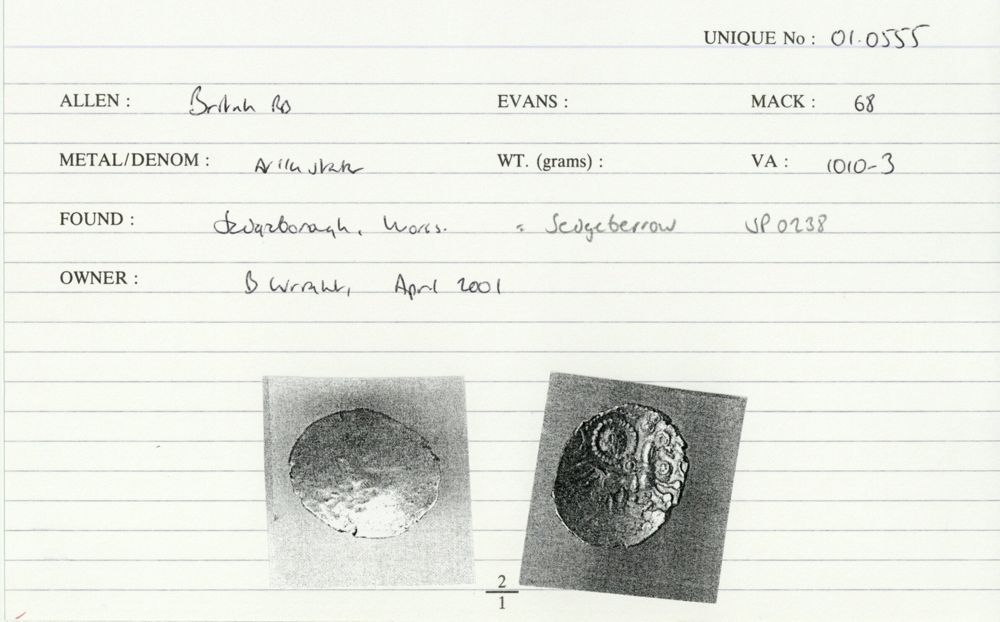 UNIQUE No : 01.0555
ALLEN : British EVANS : MACK : 68
METAL/DENOM : stater WT. (grams) : VA : 1010-3
FOUND : Worcs. = Sedgeberrow SP 0238
OWNER : B April 2001
2
1